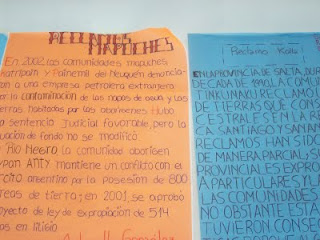 RECLAMOS MAPUCHES
En 2002, las comunidades mapuches
Painemil del Neuquén denuncia-
a una empresa petrolera extranjera
por la contaminación de las napas de agua y las
habitadas por los aborígenes. Hubo
sentencia judicial favorable, pero la
de fondo no se modificó
Río Negro, la comunidad aborigen
mantiene un conflicto con el
argentino por la posesión de 800
de tierra; en 2001, se aprobó
de ley de expropiación de 514
en litigio
Reclamo Kolla
EN LA PROVINCIA DE SALTA, DUR
DECADA DE
RECLAMO
DE TIERRAS QUE CON
CESTRALE
SANTIAGO Y SAN
RECLAMOS HAN SID
DE MANERA PARCIAL, S
PROVINCIALES EXPRO
A PARTICULARES Y
LAS COMUNIDADES
NO OBSTANTE ESTA
TUVIERON CONSE